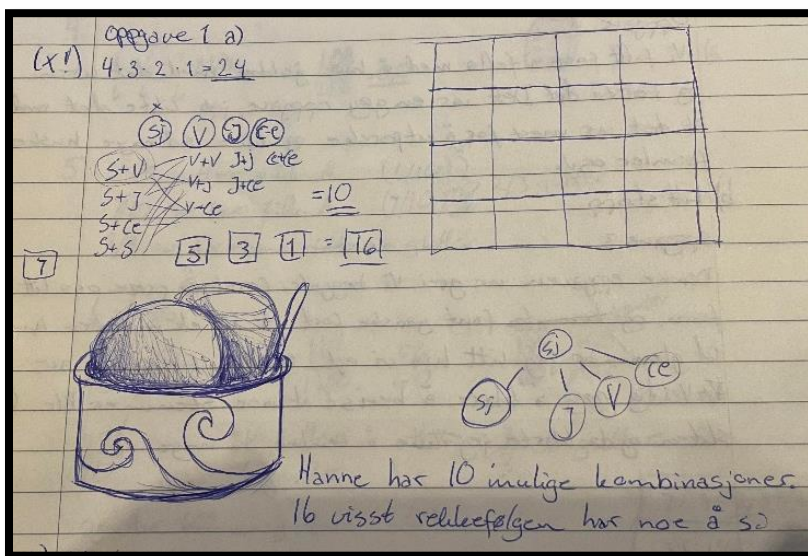 Oppgave 1 a)
(x!) 4·3·2·1=24
x
Sj V J Ce
S+V V+V J+J Ce+Ce
S+J V+J J+Ce
S+Ce V+Ce =10
S+S
7 5 3 1 = 16
Sj
Sj J V Ce
Hanne har 10 mulige kombinasjoner.
16 visst rekkefølgen har noe å si